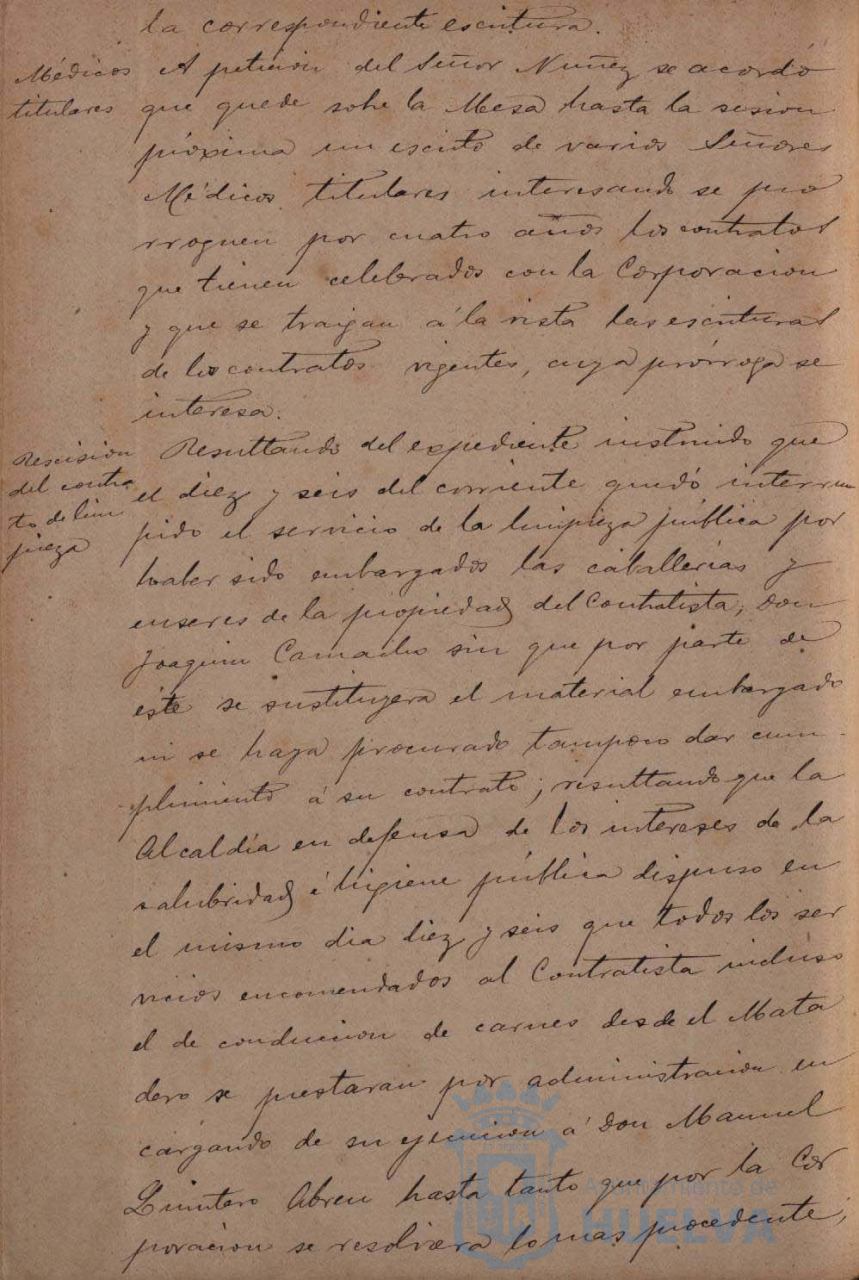 la correspondiente escritura.
Médicos
titulares
A petición del Señor Nuñez se acordó
que quede sobre la Mesa hasta la sesion
próxima un escrito de varios Señores
Médicos titulares interesando se pro
rroguen por cuatro años los contratos
que tienen celebrados con la Corporacion
y que se traigan á la vista las escrituras
de los contratos vigentes, cuya prórroga se
interesa.
Rescision
del contra
to de lim
pieza
Resultando del expediente instruido que
el diez y seis del corriente quedó interrum
pido el servicio de la limpieza pública por
haber sido embargados las caballerias y
enseres de la propiedad del Contratista, Don
Joaquin Camacho sin que por parte de
éste se sustituyera el material embargado
ni se haya procurado tampoco dar cum-
plimiento á su contrato; resultando que la
Alcaldía en defensa de los intereses de la
salubridad é higiene pública dispuso en
el mismo dia diez y seis que todos los ser
vicios encomendados al Contratista incluso
el de conducion de carnes desde el Mata
dero se prestaran por administracion en
cargando de su ejecucion á Don Manuel
Quintero Abreu hasta tanto que por la Cor
poracion se resolviera lo mas procedente;
Ayuntamiento de
HUELVA